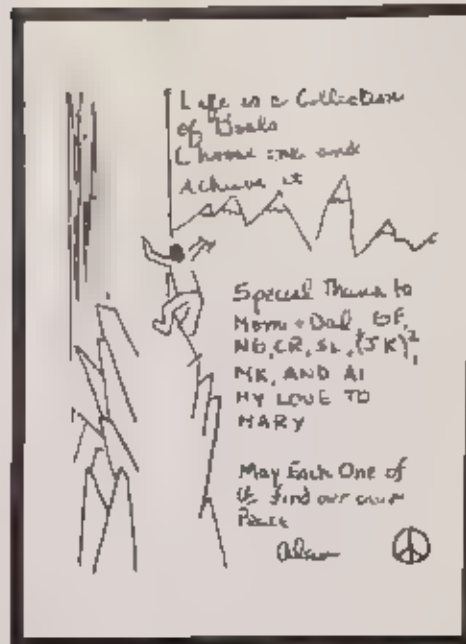 Life is a Collection
of Goals
Choose one and
Achieve it
Special Thanks to
Mom + Dad, GF,
NG, CR, SL, (JK)²,
MK, AND AI
MY LOVE TO
MARY
May Each One of
Us find our own
Peace